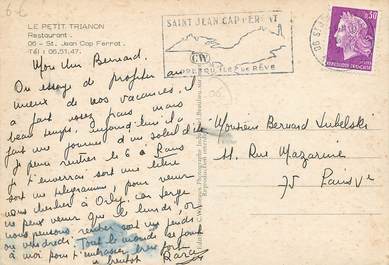 LE PETIT TRIANON
Restaurant
06 - St. Jean Cap Ferrat
Tél : 06.51.47.
SAINT JEAN CAP FERRAT
PRESQU'ILE DE RÊVE
0,30
Mon cher Bernard.
On essaye de profiter au
mieux de nos vacances, il
a fait assez frais mais
beau temps, aujourd'hui il a
fait une journée d'un soleil d'été
Je pense rentrer le 6 à Paris
je t'enverrai soit une lettre
soit un télégramme, pour venir
nous chercher à Orly, car Serge
ne peut venir que le lundi, or
nous pensons rentrer soit
ou vendredi. Tout le monde se joint
à moi pour t'embrasser bien fort
à bientôt
Monsieur Bernard Lubelski
11. Rue Mazarine
75 Paris VI